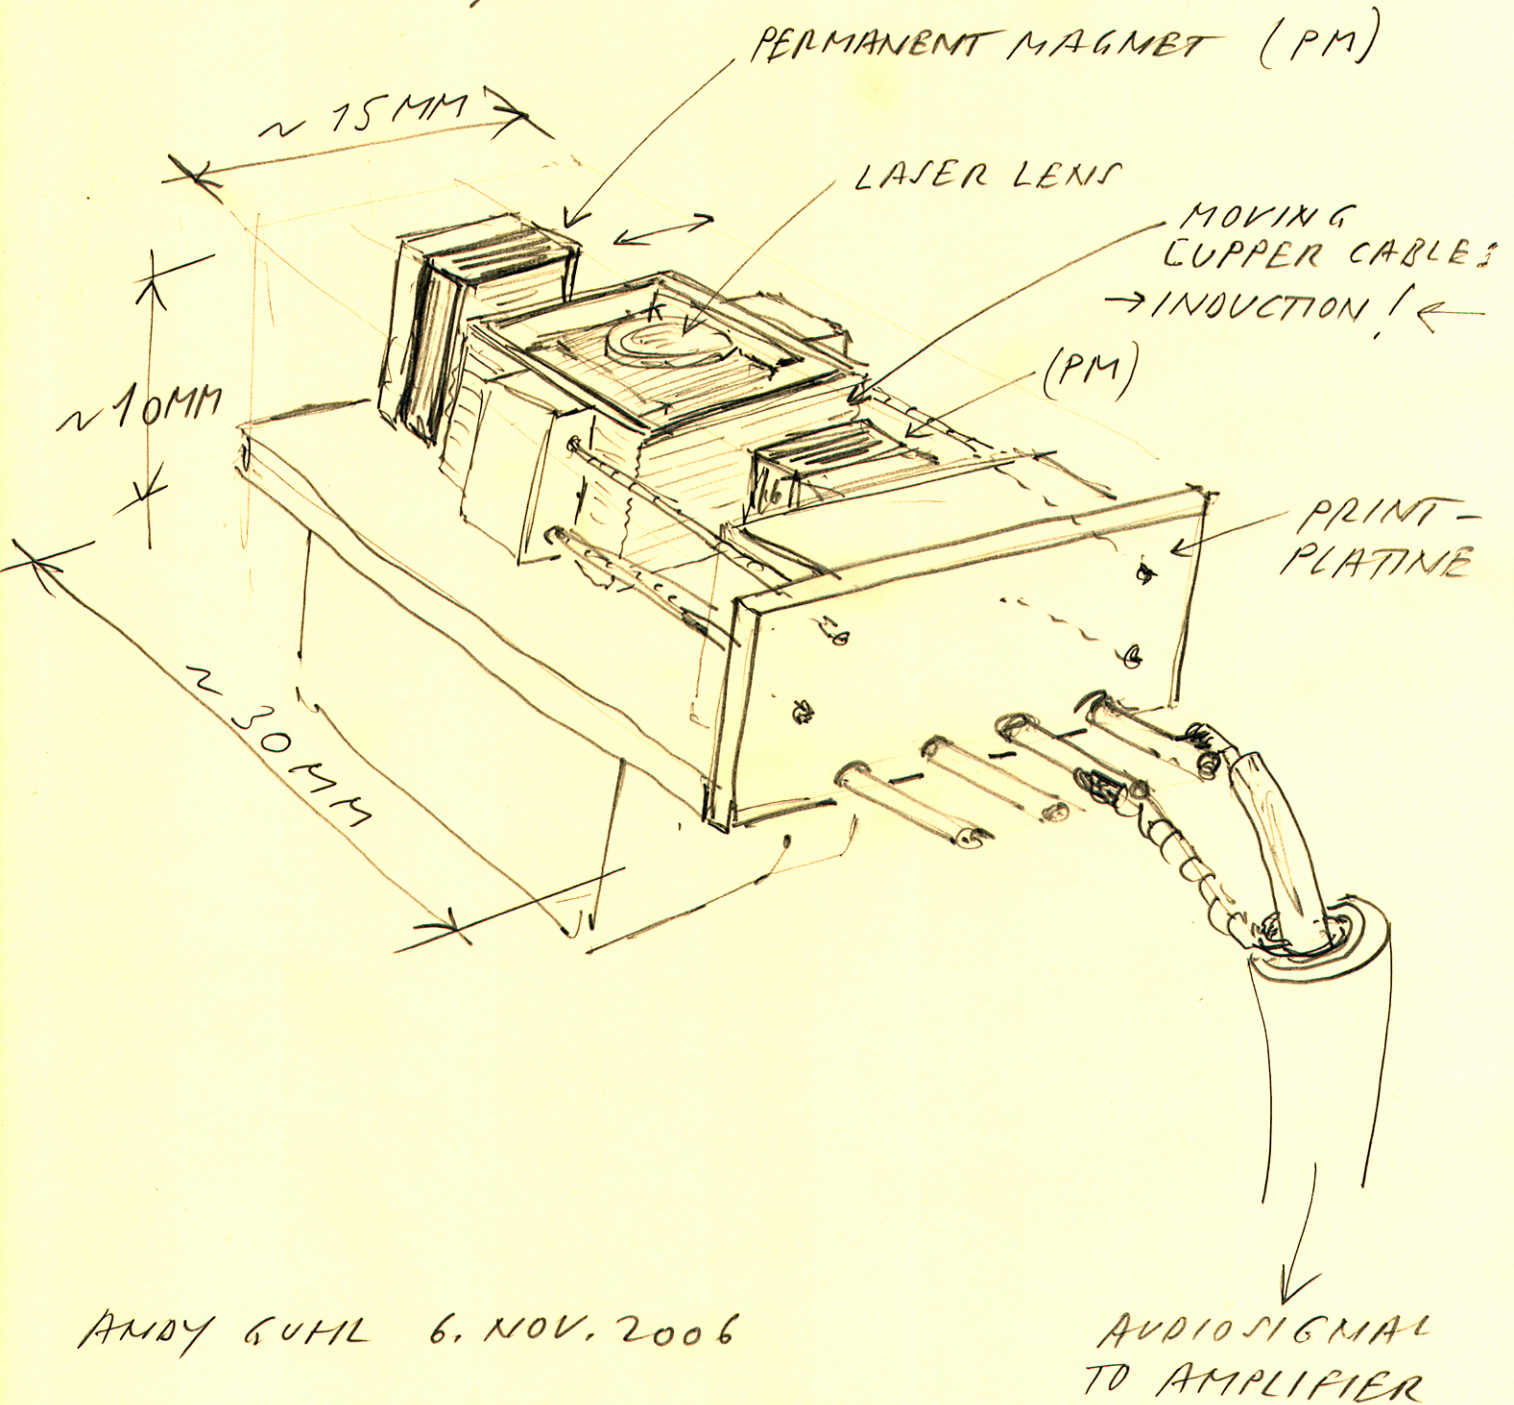 PERMANENT MAGNET (PM)
~ 15MM
LASER LENS
MOVING
CUPPER CABLE:
→INDUCTION!←
(PM)
~10MM
PRINT-
PLATINE
~ 30MM
ANDY GUHL 6. NOV. 2006
AUDIOSIGNAL
TO AMPLIFIER